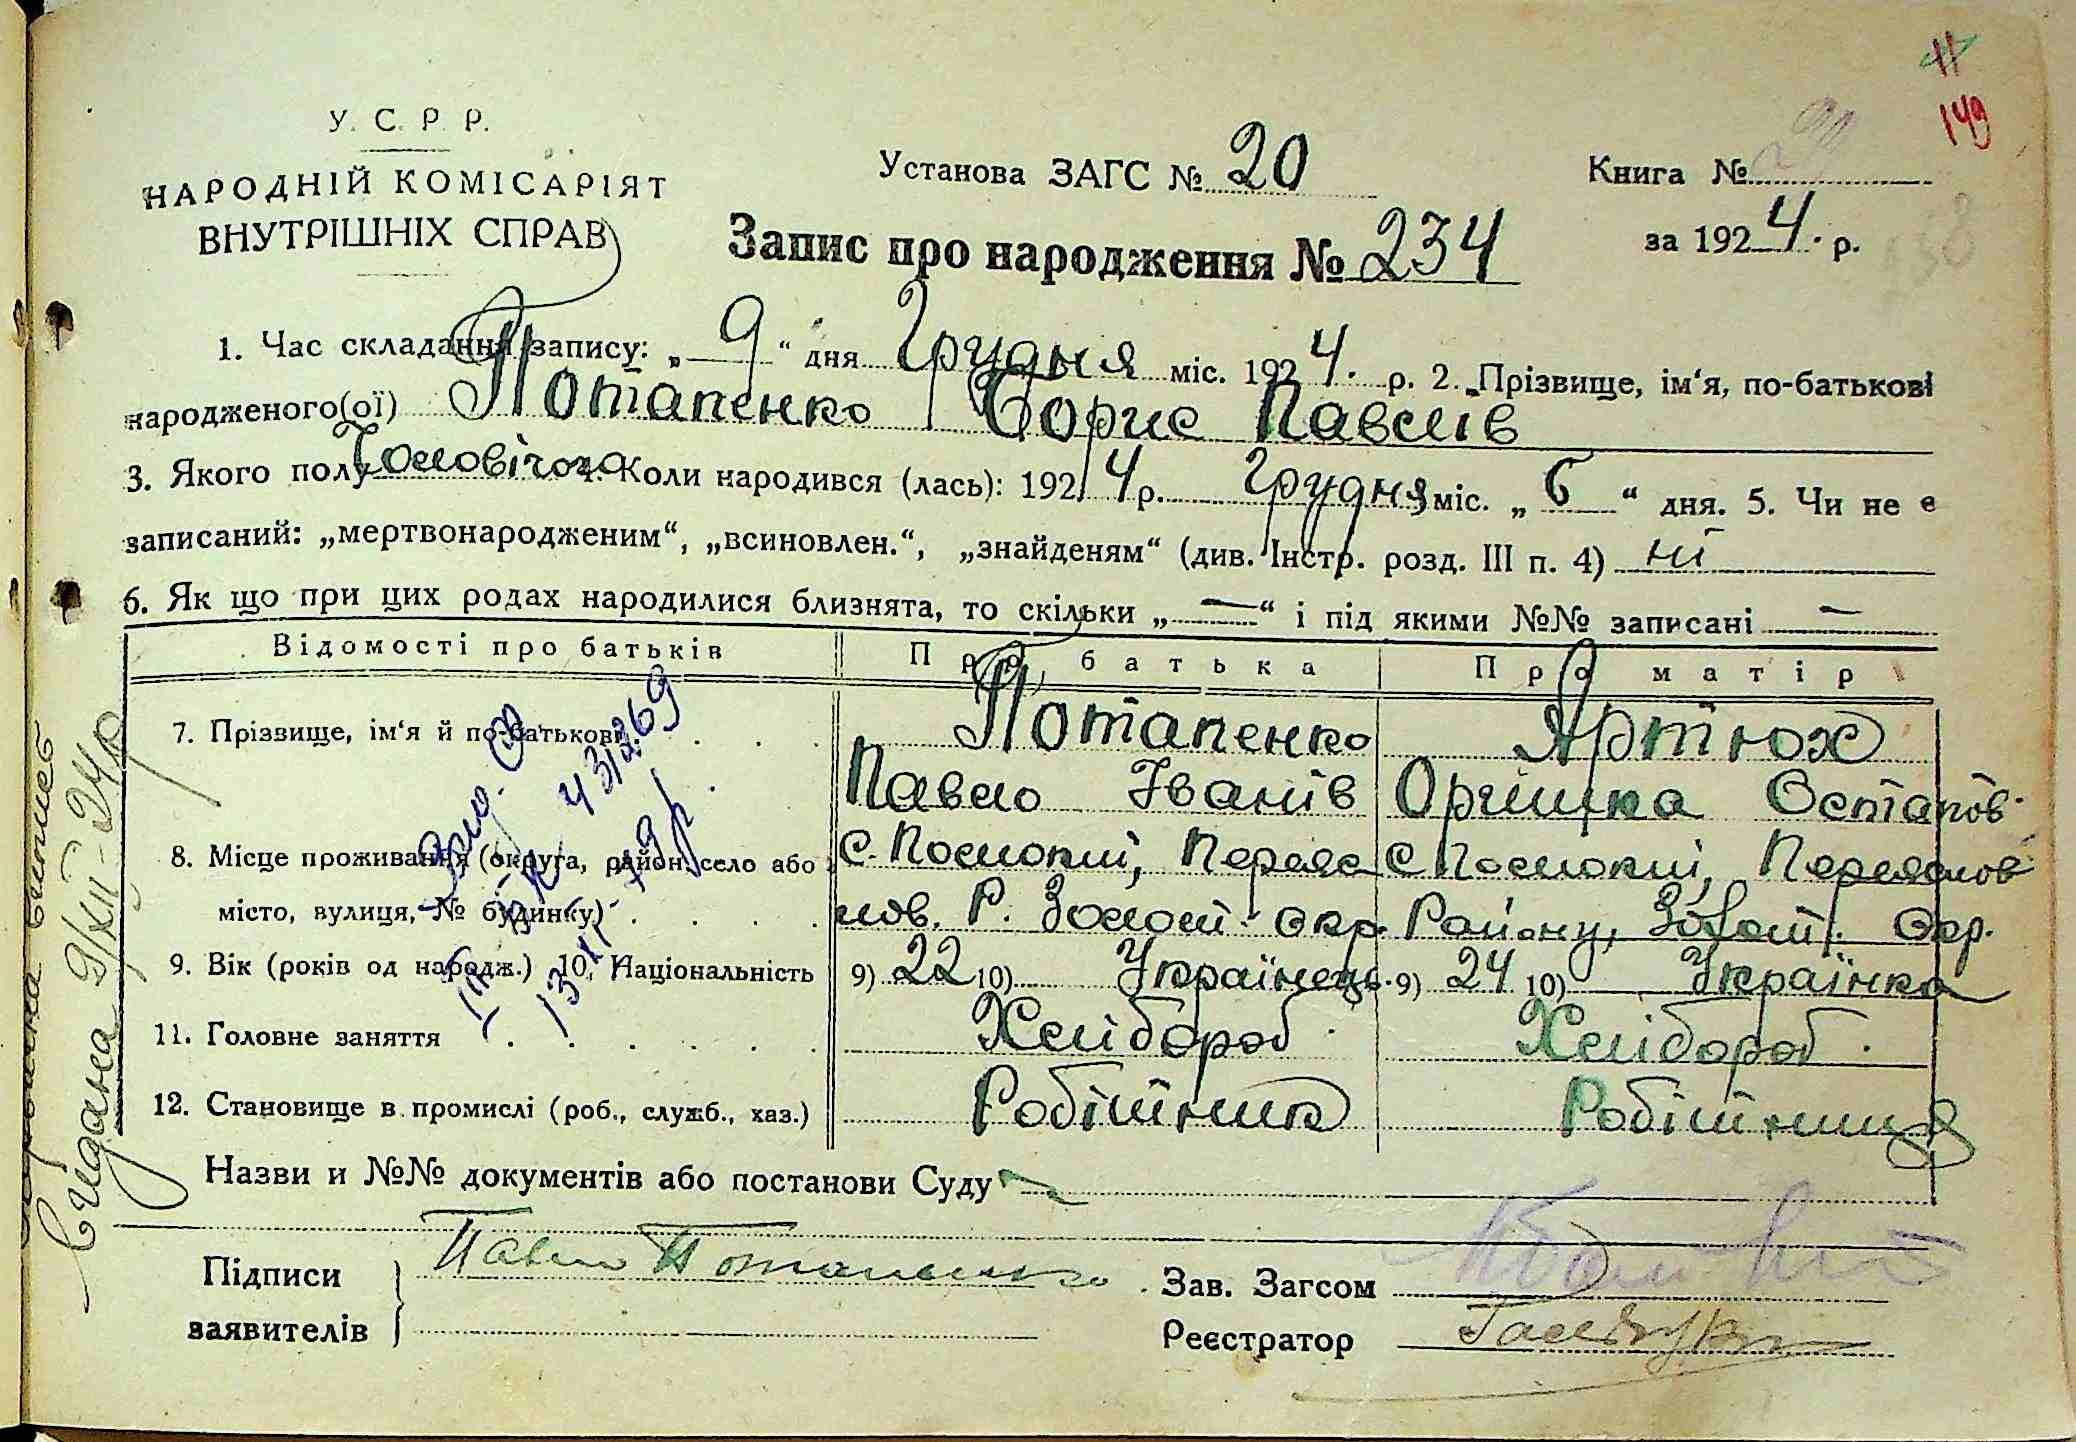 11
149
У. С. Р. Р.
НАРОДНІЙ КОМІСАРІЯТ
ВНУТРІШНІХ СПРАВ
Установа ЗАГС № 20
Книга №
Запис про народження № 234
за 1924 р.
1. Час складання запису: „ 9 “ дня Грудня міс. 1924. р. 2. Прізвище, ім‘я, по-батькові
народженого(ої) Потапенко Борис Павлів
3. Якого полу Чоловічого 4. Коли народився (лась): 1924 р. Грудня міс. „ 6 “ дня. 5. Чи не є
записаний: „мертвонародженим“, „всиновлен.“, „знайденям“ (див. Інстр. розд. III п. 4) ні
6. Як що при цих родах народилися близнята, то скільки „ — “ і під якими №№ записані —
Відомості про батьків Про батька Про матір
7. Прізвище, ім‘я й по-батькові Потапенко Артюх
Павло Іванів Оришка Остапов.
8. Місце проживання (округа, район, село або с. Помоклі, Переяс с Помоклі, Переяслов
місто, вулиця, № будинку) лов. Р. Золот. окр. Району, Золот. Окр.
9. Вік (років од народж.) 10. Національність 9) 22 10) Українець. 9) 24 10) Українка
11. Головне заняття Хлібороб Хлібороб.
12. Становище в промислі (роб., служб., хаз.) Робітник Робітниця
Назви и №№ документів або постанови Суду
Підписи
заявителів
Павло Потапенко
Зав. Загсом
Реєстратор
Видана 9/XII-24р